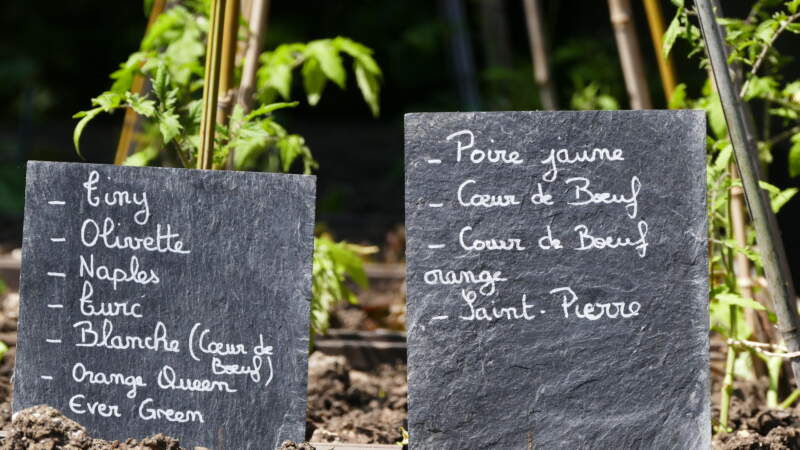 - Tiny
- Olivette
- Naples
- Turc
- Blanche (Cœur de
Bœuf)
- Orange Queen
Ever Green
- Poire jaune
- Cœur de Bœuf
- Cœur de Bœuf
orange
- Saint-Pierre